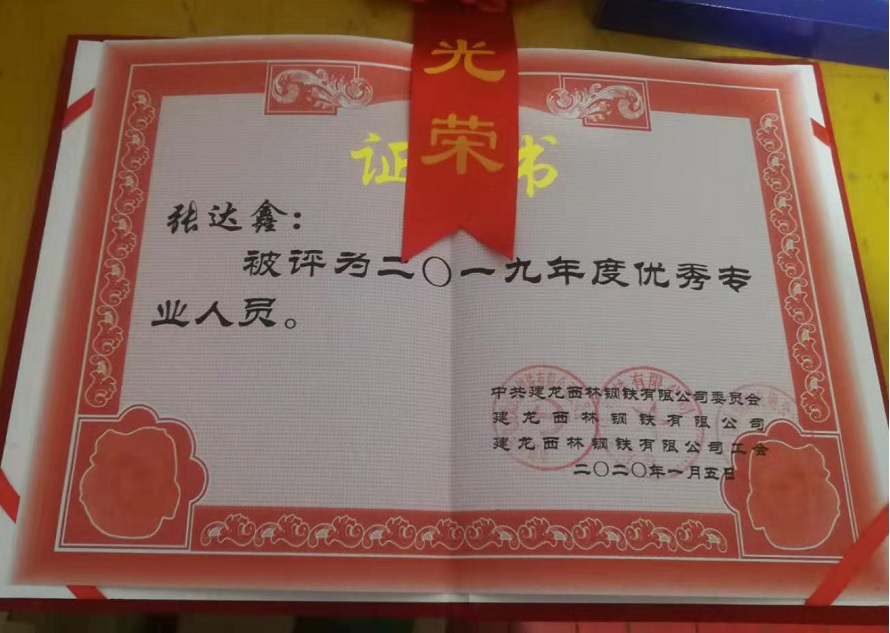 光荣
证书
张达鑫：
被评为二〇一九年度优秀专
业人员。
中共建龙西林钢铁有限公司委员会
建龙西林钢铁有限公司
建龙西林钢铁有限公司工会
二〇二〇年一月五日